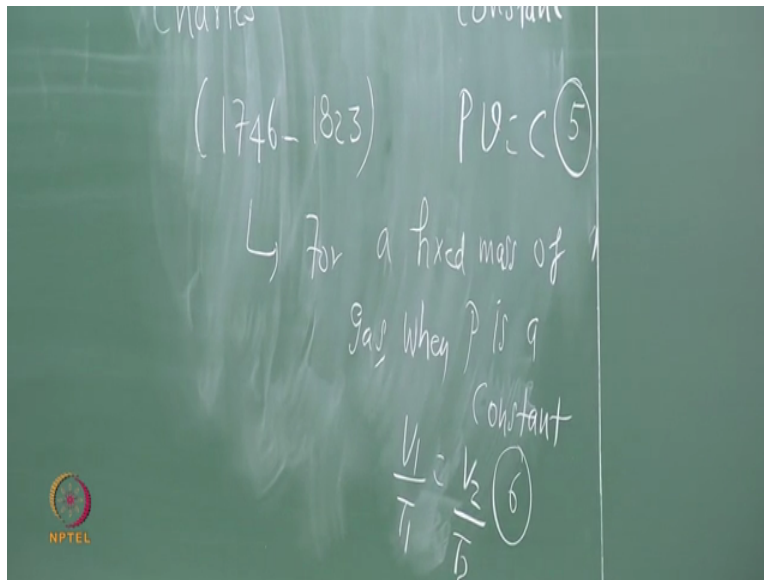 Charles constant
(1746 - 1823) PV = C (5)
↳ For a fixed mass of
gas when P is a
constant
V1/T1 = V2/T2 (6)
NPTEL